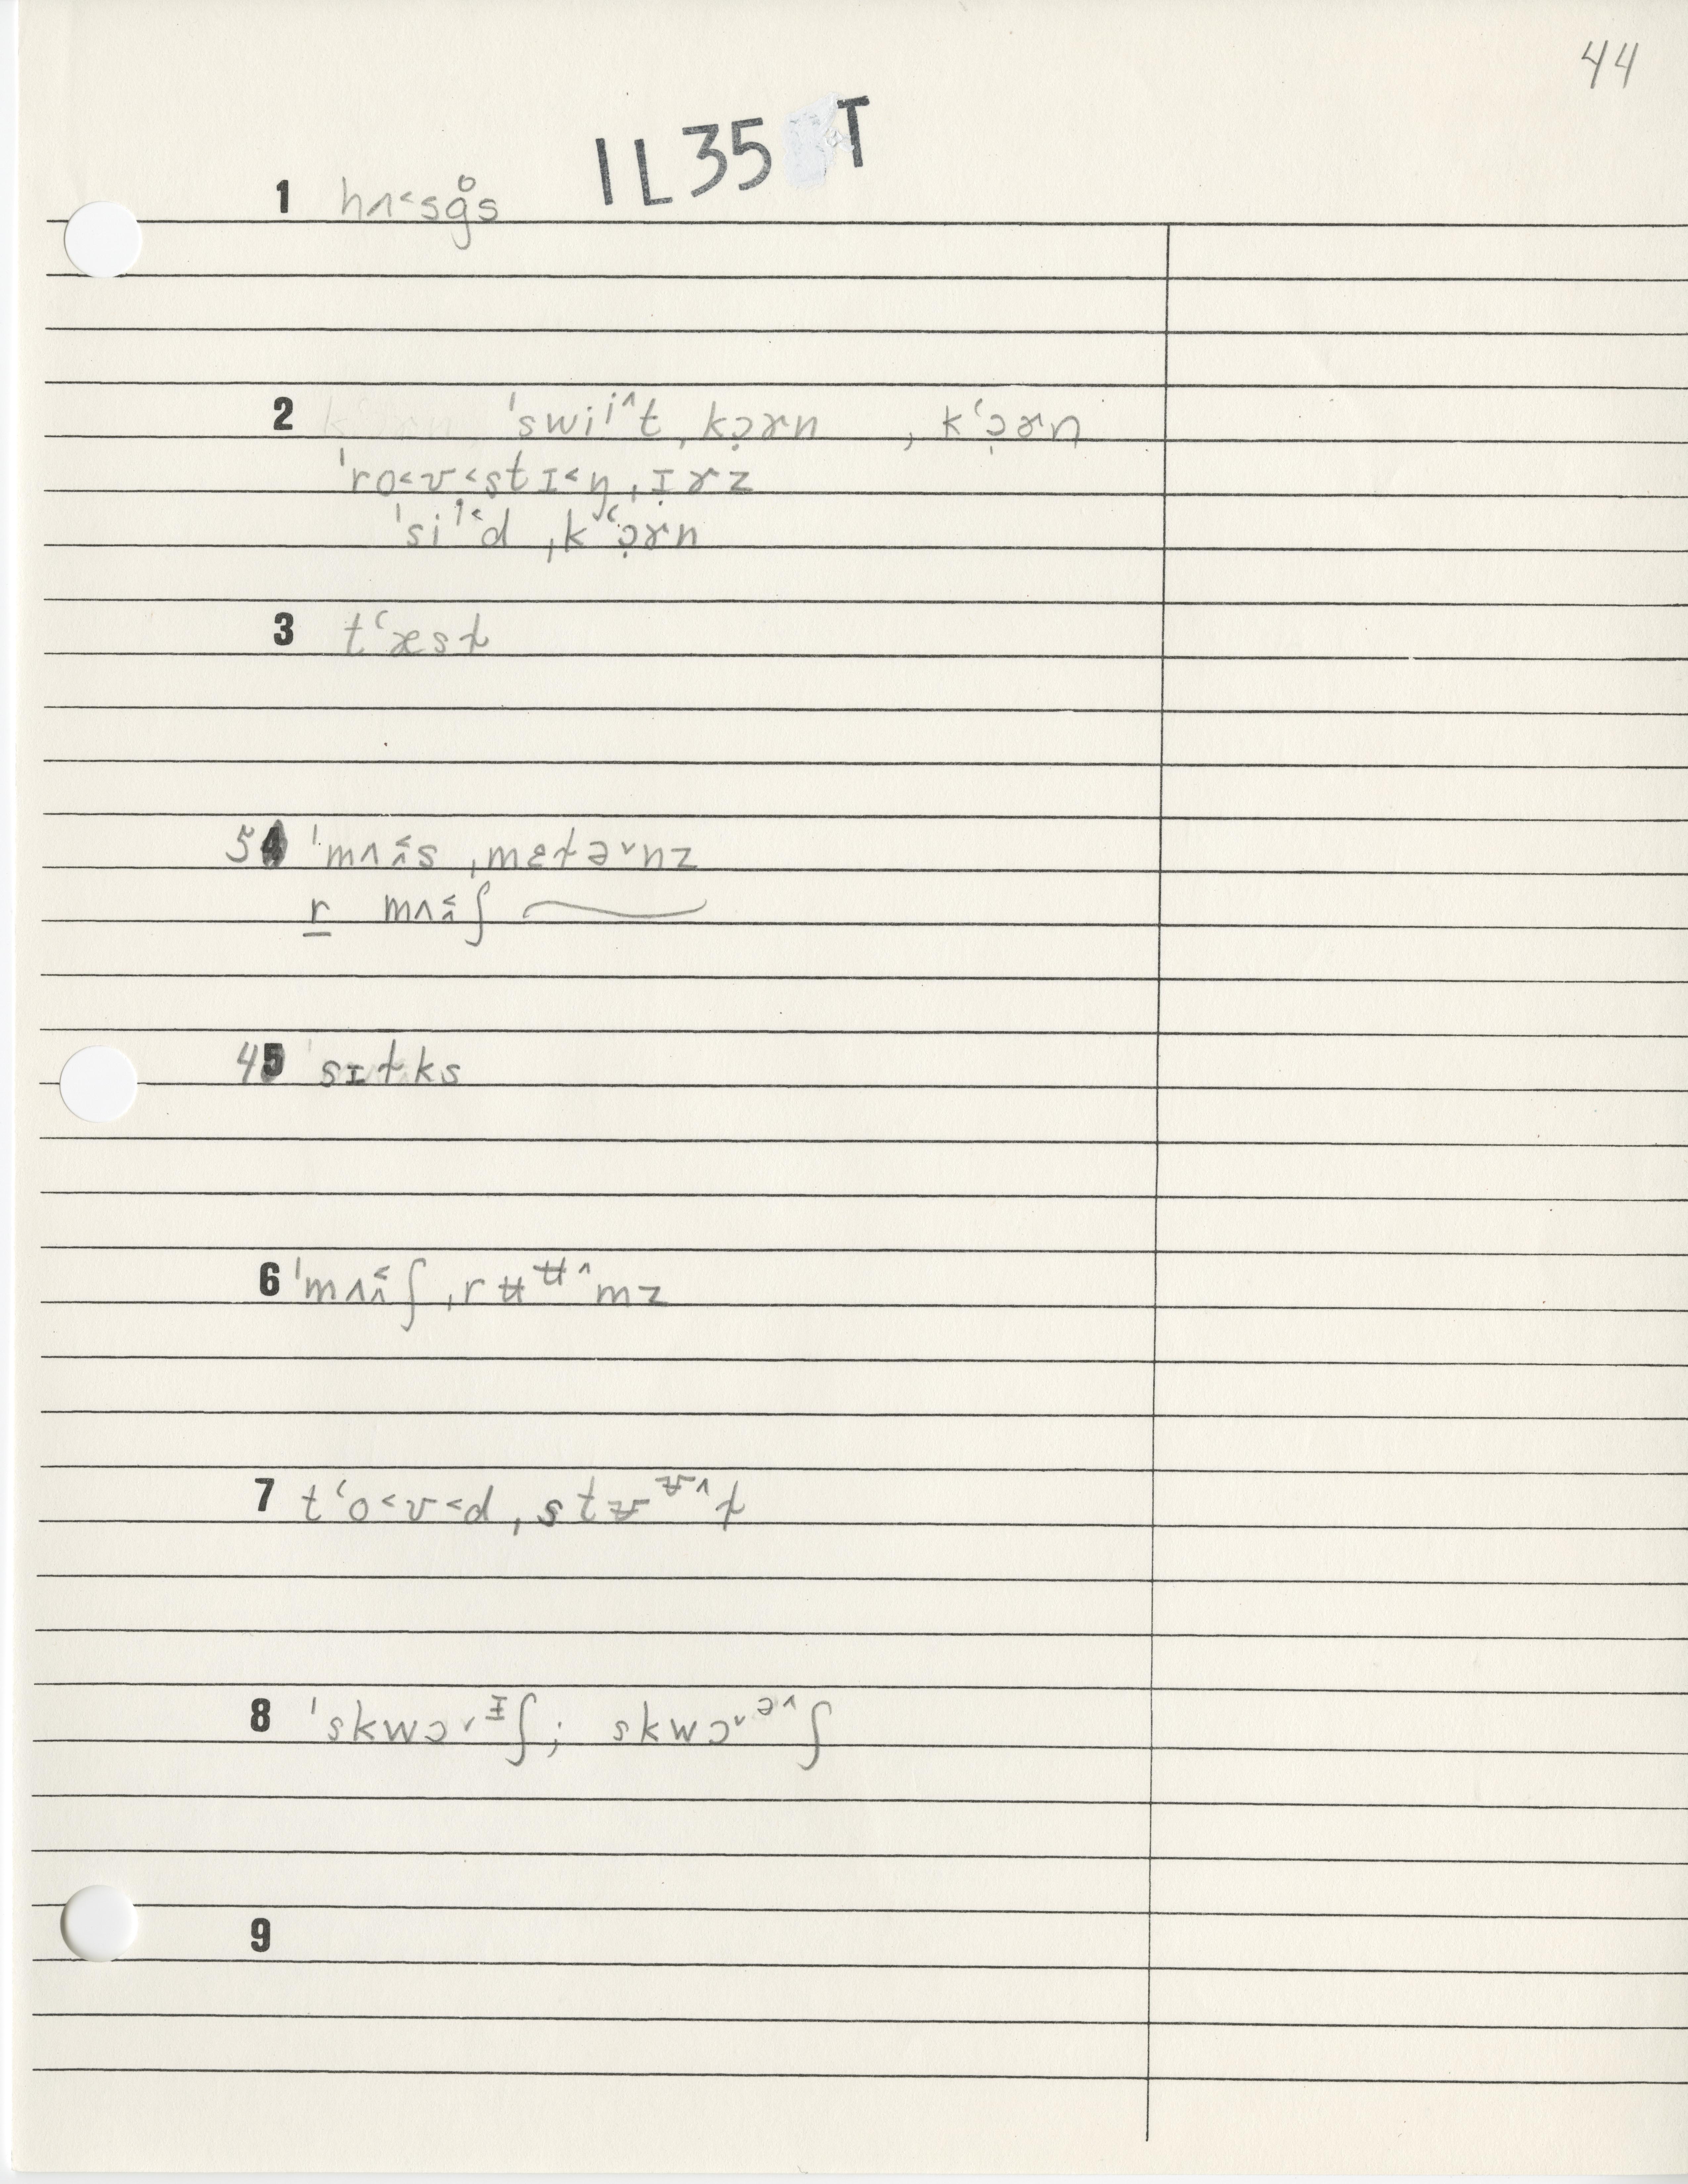 44
IL35 T
1 hʌ˂sg̊s
2 ˈswiiˆt ˌkɔ̣ɤn , kʻɔ̣ɤn
ˈro˂ʊ˂stɪ˂ŋ ˌɪ̣ɤz
ˈsii˂d ˌkʻɔ̣ɤn
3 tʻæsɫ
54 ˈmʌʌ̂˂s ˌmɛɫə˅nz
r mʌʌ̂˂ʃ
45 ˈsɪɫks
6 ˈmʌʌ̂˂ʃ ˌrʉʉˆmz
7 tʻo˂ʊ˂d ˌstʊ̵ʊ̵ˆɫ
8 ˈskwɔ˅ɪ̵ʃ; skwɔ˅ə˄ʃ
9